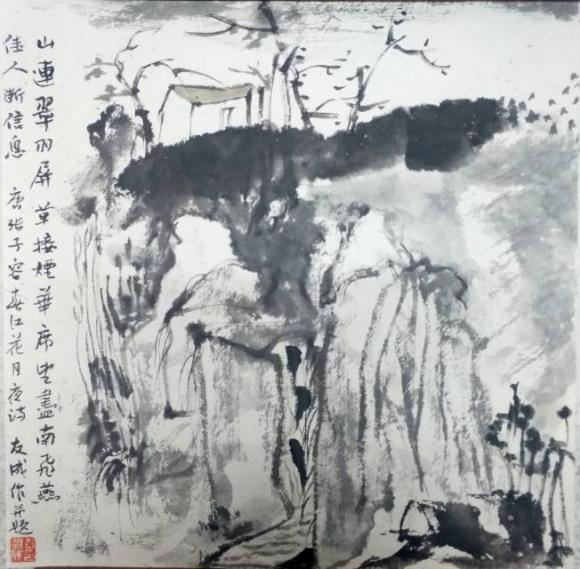 山連翠羽屏草接煙華席望盡南飛燕
佳人断信息 唐张子容春江花月夜诗 友成作并题